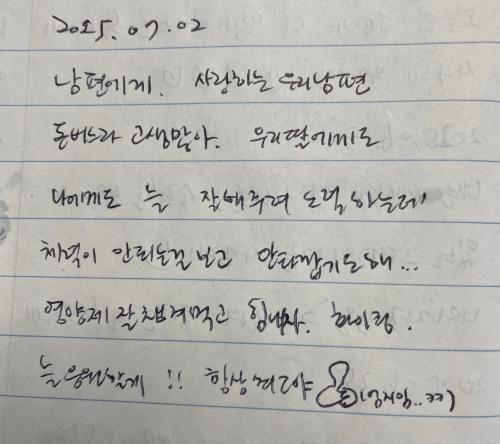 2025.07.02
남편에게. 사랑하는 우리남편
돈버느라 고생많아. 우리딸에게도
나에게도 늘 잘해주려 노력하는데
체력이 안되는걸 보고 안타깝기도해...
영양제 잘챙겨먹고 힘내자. 화이팅.
늘 응원할게 !! 항상